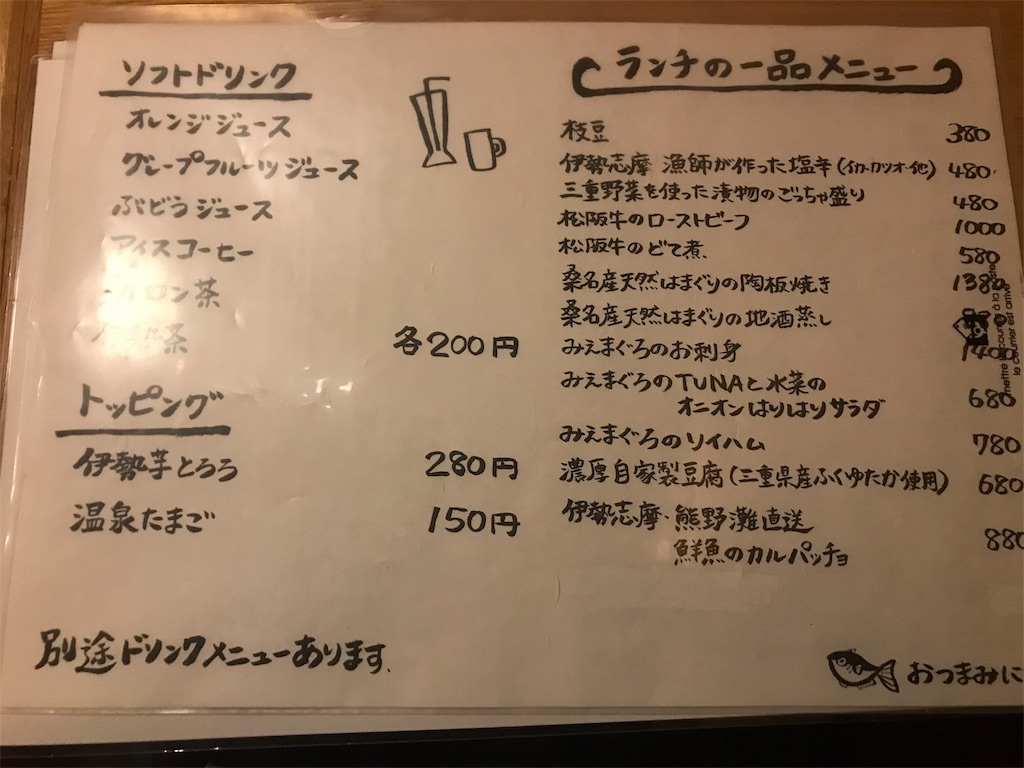 ソフトドリンク
オレンジジュース
グレープフルーツジュース
ぶどうジュース
アイスコーヒー
ウーロン茶
伊勢茶 各200円
トッピング
伊勢芋とろろ 280円
温泉たまご 150円
別途ドリンクメニューあります.
ランチの一品メニュー
枝豆 380
伊勢志摩 漁師が作った塩辛(イカ・カツオ・他) 480
三重野菜を使った漬物のごっちゃ盛り 480
松阪牛のローストビーフ 1000
松阪牛のどて煮 580
桑名産天然はまぐりの陶板焼き 1380
桑名産天然はまぐりの地酒蒸し
みえまぐろのお刺身 1400
みえまぐろのTUNAと水菜の
オニオンはりはりサラダ 680
みえまぐろのソイハム 780
濃厚自家製豆腐(三重県産ふくゆたか使用) 680
伊勢志摩・熊野灘直送
鮮魚のカルパッチョ 880
おつまみに
le courrier est arrivé